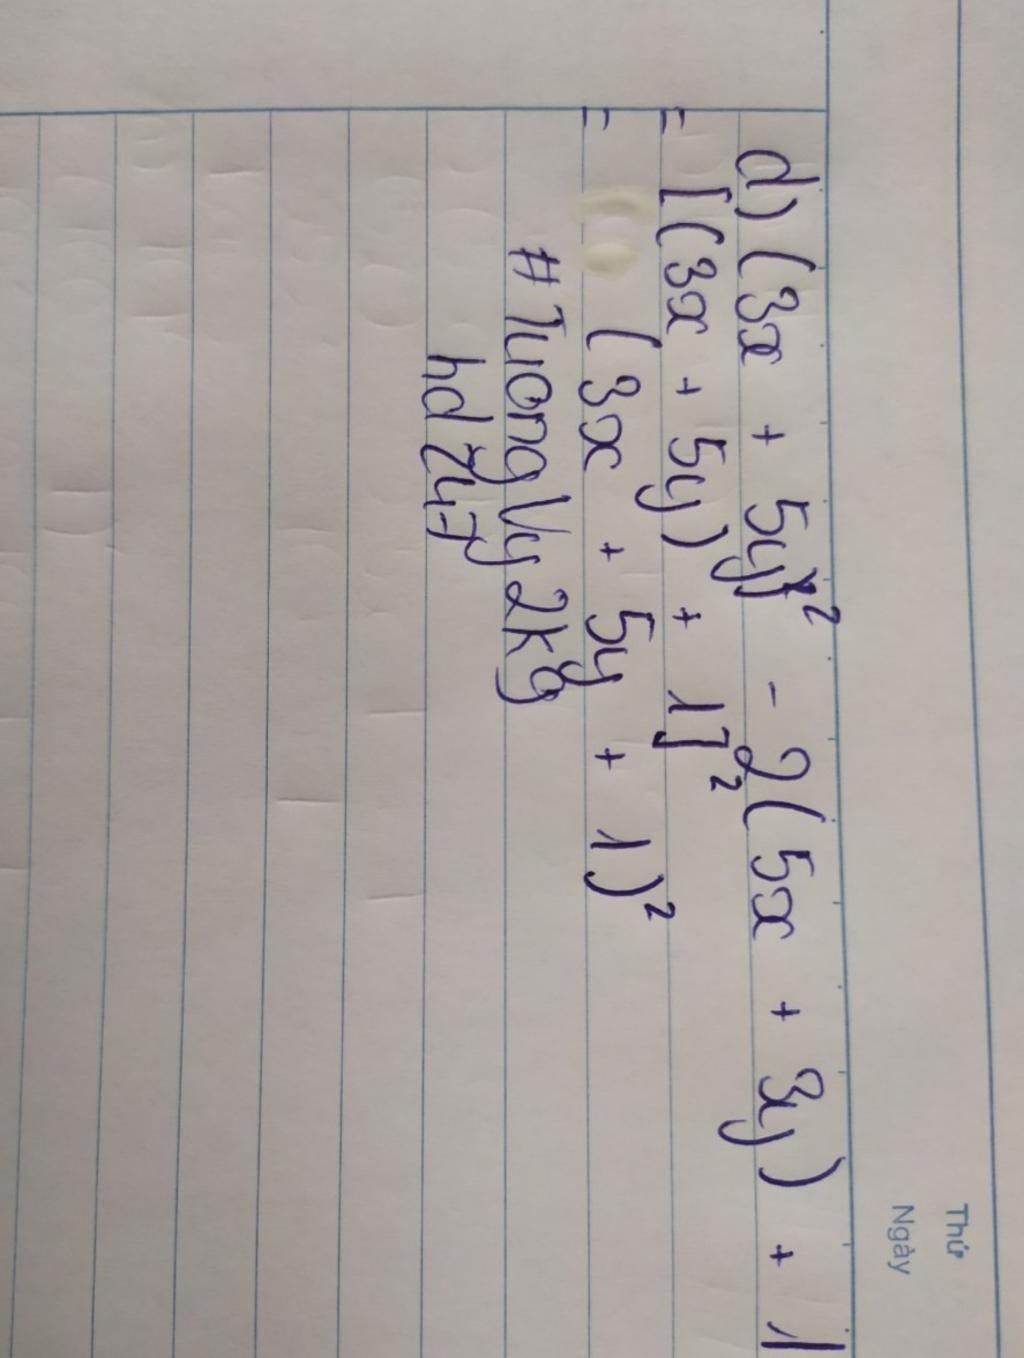 Thứ
Ngày
d) (3x + 5y)² - 2(5x + 3y) + 1
= [(3x + 5y) + 1]²
= (3x + 5y + 1)²
#TuongVy2kg
hd247